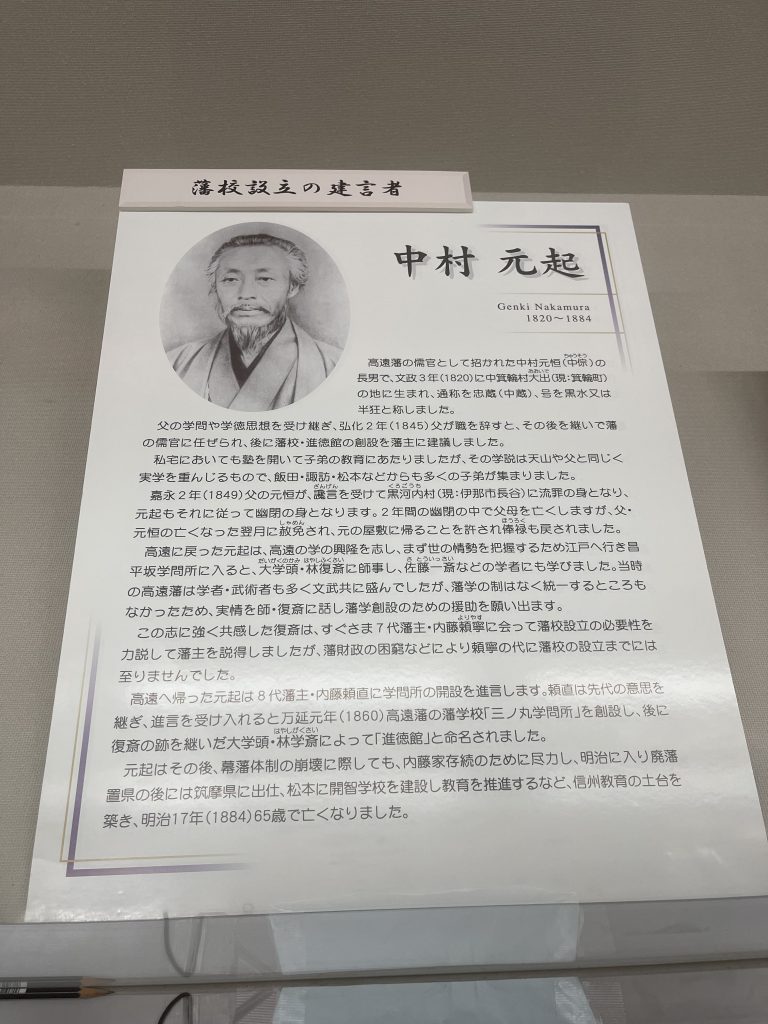 藩校設立の建言者
中村 元起
Genki Nakamura
1820～1884
高遠藩の儒官として招かれた中村元恒(中倧)の
長男で、文政3年(1820)に中箕輪村大出(現:箕輪町)
の地に生まれ、通称を忠蔵(中蔵)、号を黒水又は
半狂と称しました。
父の学問や学徳思想を受け継ぎ、弘化2年(1845)父が職を辞すと、その後を継いで藩
の儒官に任ぜられ、後に藩校・進徳館の創設を藩主に建議しました。
私宅においても塾を開いて子弟の教育にあたりましたが、その学説は天山や父と同じく
実学を重んじるもので、飯田・諏訪・松本などからも多くの子弟が集まりました。
嘉永2年(1849)父の元恒が、讒言を受けて黒河内村(現:伊那市長谷)に流罪の身となり、
元起もそれに従って幽閉の身となります。2年間の幽閉の中で父母を亡くしますが、父・
元恒の亡くなった翌月に赦免され、元の屋敷に帰ることを許され俸禄も戻されました。
高遠に戻った元起は、高遠の学の興隆を志し、まず世の情勢を把握するため江戸へ行き昌
平坂学問所に入ると、大学頭・林復斎に師事し、佐藤一斎などの学者にも学びました。当時
の高遠藩は学者・武術者も多く文武共に盛んでしたが、藩学の制はなく統一するところも
なかったため、実情を師・復斎に話し藩学創設のための援助を願い出ます。
この志に強く共感した復斎は、すぐさま7代藩主・内藤頼寧に会って藩校設立の必要性を
力説して藩主を説得しましたが、藩財政の困窮などにより頼寧の代に藩校の設立までには
至りませんでした。
高遠へ帰った元起は8代藩主・内藤頼直に学問所の開設を進言します。頼直は先代の意思を
継ぎ、進言を受け入れると万延元年(1860)高遠藩の藩学校「三ノ丸学問所」を創設し、後に
復斎の跡を継いだ大学頭・林学斎によって「進徳館」と命名されました。
元起はその後、幕藩体制の崩壊に際しても、内藤家存続のために尽力し、明治に入り廃藩
置県の後には筑摩県に出仕、松本に開智学校を建設し教育を推進するなど、信州教育の土台を
築き、明治17年(1884)65歳で亡くなりました。